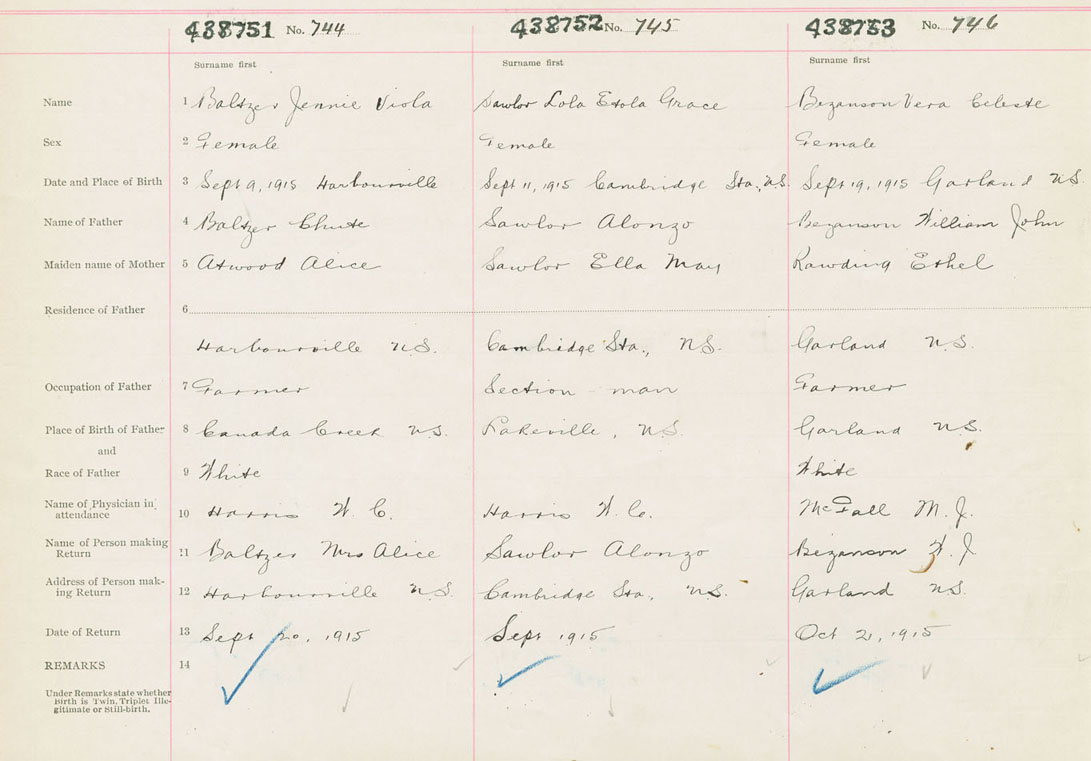 438751 No. 744 438752 No. 745 438753 No. 746
Surname first Surname first Surname first
Name 1 Baltzer Jennie Viola Sawlor Lola Etola Grace Bezanson Vera Celeste
Sex 2 Female Female Female
Date and Place of Birth 3 Sept 9, 1915 Harbourville Sept 11, 1915 Cambridge Sta., N.S. Sept 19, 1915 Garland N.S.
Name of Father 4 Baltzer Chute Sawlor Alonzo Bezanson William John
Maiden name of Mother 5 Atwood Alice Sawlor Ella May Rawding Ethel
Residence of Father 6
Harbourville N.S. Cambridge Sta., N.S. Garland N.S.
Occupation of Father 7 Farmer Section man Farmer
Place of Birth of Father 8 Canada Creek N.S. Lakeville, N.S. Garland N.S.
and
Race of Father 9 White White
Name of Physician in attendance 10 Harris W. C. Harris W. C. McFall M. J.
Name of Person making Return 11 Baltzer Mrs Alice Sawlor Alonzo Bezanson W. J
Address of Person making Return 12 Harbourville N.S. Cambridge Sta., N.S. Garland N.S.
Date of Return 13 Sept 20, 1915 Sept 1915 Oct 21, 1915
REMARKS 14
Under Remarks state whether
Birth is Twin. Triplet Ille-
gitimate or Still-birth.